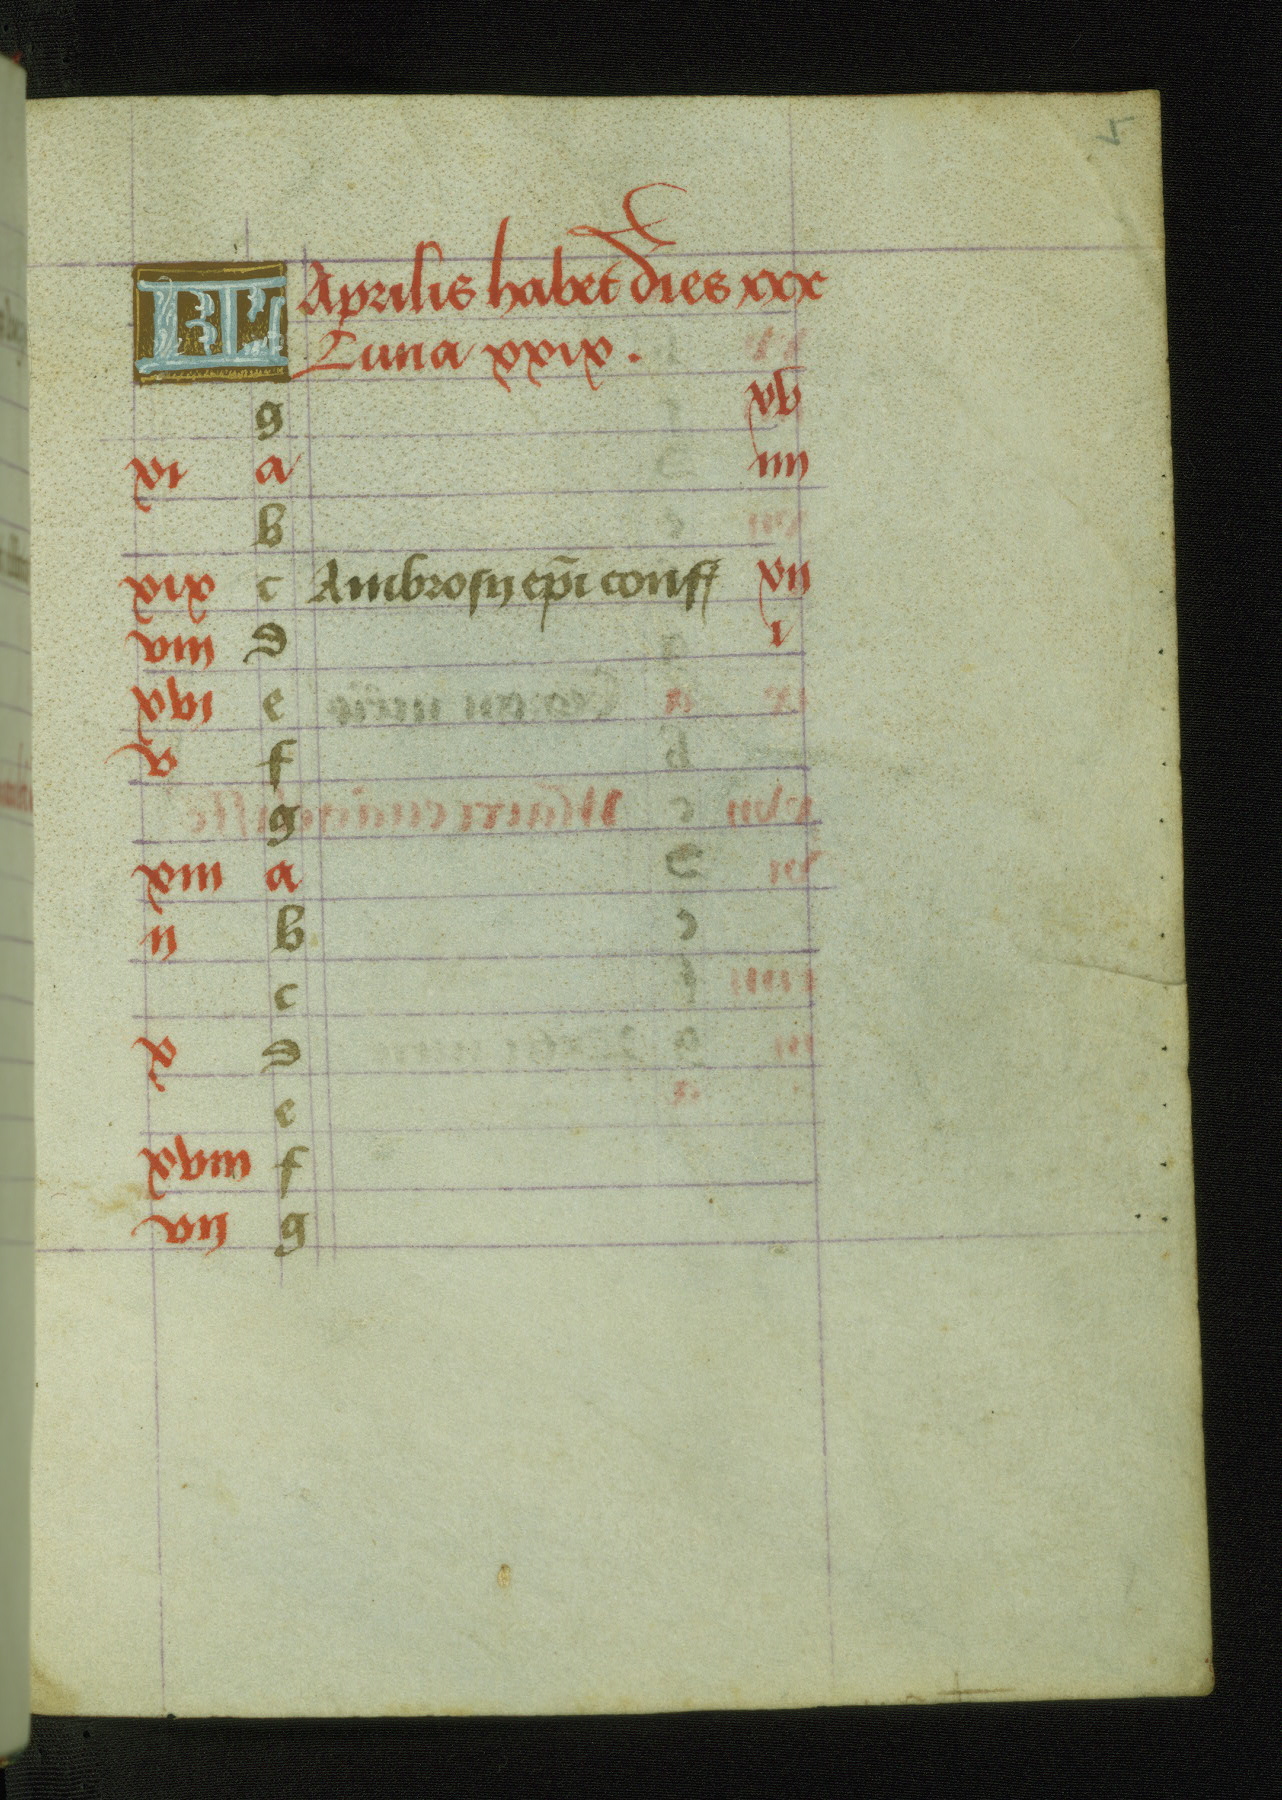 4
KL Aprilis habet dies xxx
Luna xxix.
g xv
xi a iiij
b
xix c Ambrosij ep̄i conff xij
viij d i
xvi e
v f
g
xiij a
ij b
c
x d
e
xviij f
vij g